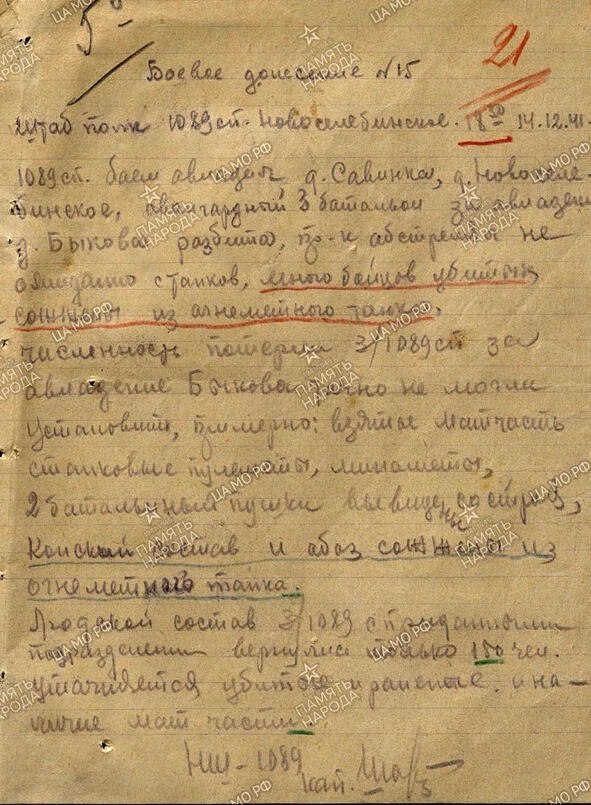 5
21
Боевое донесение №15
Штаб полк 1089сп. Новоселебинское. 18 30 14.12.41.
1089сп. боем овладел д. Савинка, д. Новоселе-
бинское, авангардный 3 батальон за овладен
д. Быкова разбито, т-к обстрелы не
ожидано с танков, много бойцов убитых
сожжены из огнеметного танка.
численность потерии 3/1089сп за
овладение Быкова точно не могли
установить, примерно: взятое матчасть
станковые пулеметы, минометы,
2 батальонный пушки выведены со строя,
Конский состав и обоз сожжены из
огнеметного танка.
Людской состав 3/1089 с приданными
подразделении вернулись только 150 чел.
уточняется убитые и раненые. и на-
личие мат части.
НШ-1089
кап.
ПАМЯТЬ НАРОДА
ЦАМО.РФ